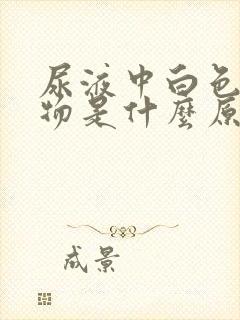 尿液中白色
物是什麼原
成景